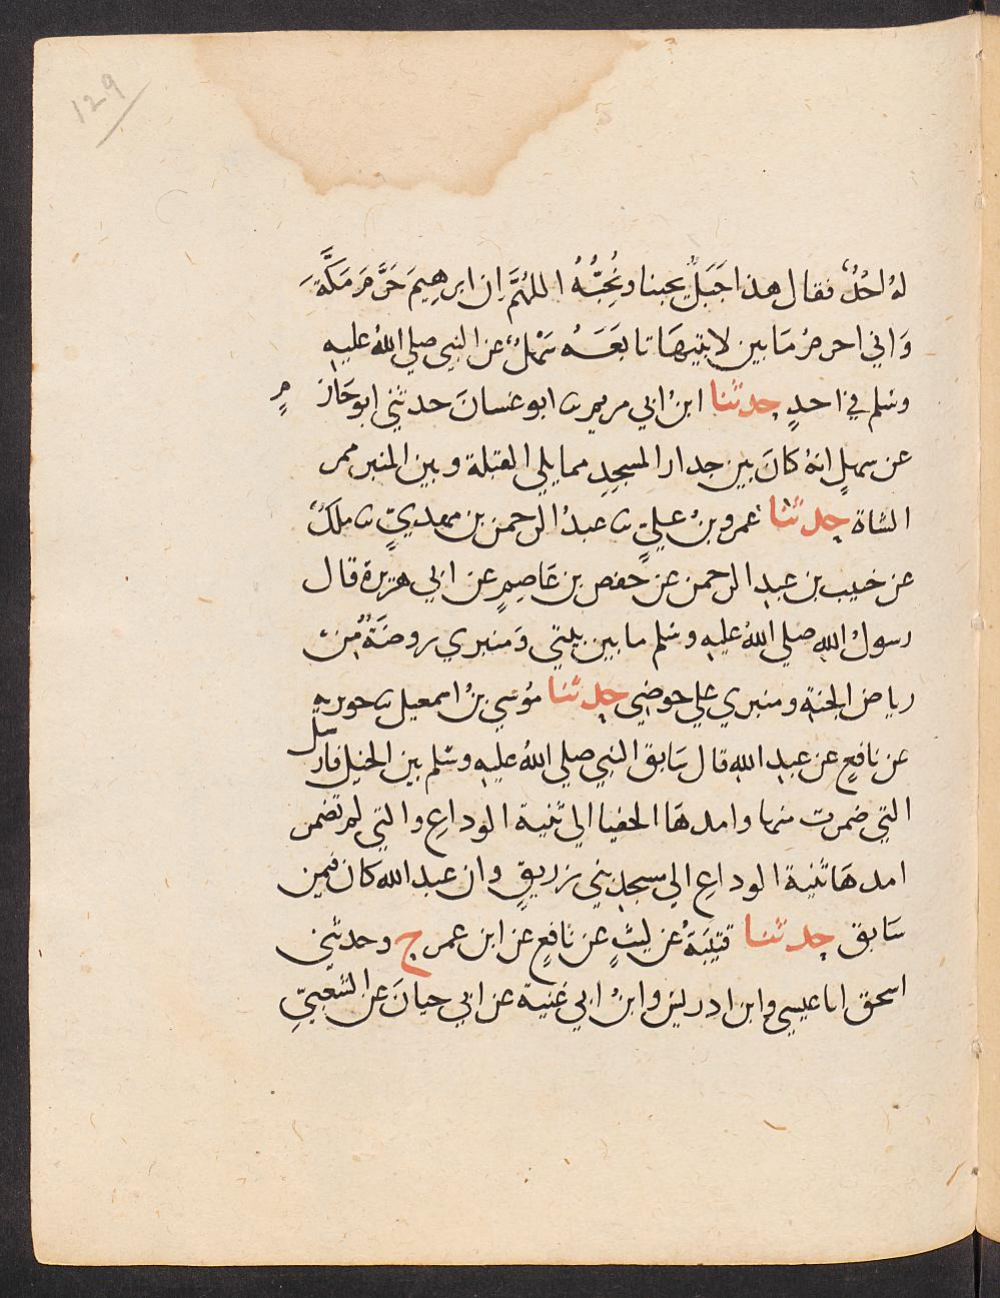 ١٢٩
لهُ احُدٌ فقال هذا جَبَلٌ يحبنا ونُحِبُّهُ اللهُمَّ ان ابرهِيمَ حَرَّمَ مَكَّةَ
وَاني احرمُ مَا بين لابتيهَا تابعَهُ سَهْلٌ عن النبي صلي اللهُ عليهِ
وسلم في احدٍ حدثنا ابنُ ابي مريم ثنا ابو غسانَ حدثني ابو حَازم
عن سهلٍ انهُ كانَ بين جدار المسجدِ مما يلي القبلة وبين المنبر ممر
الشاة حدثنا عمرو بنُ عليٍّ ثنا عبدُ الرحمن بن مهديٍّ ثنا ملكٌ
عن خبيب بن عبد الرحمن عن حفص بن عَاصِمٍ عن ابي هريرة قال
رسولُ اللهِ صلي اللهُ عليهِ وسَلم ما بين بيتي وَمنبري روضَةٌ مِن
رياض الجنةِ ومنبري علي حوضِي حدثنا مُوسَي بنُ اسمعيل ثنا جويريه
عن نافعٍ عن عبدِ اللهِ قال سَابق النبي صلي اللهُ عليهِ وسَلم بين الخيل فارسل
التي ضمرت منها وامدهَا الحفيا الي ثنية الوداعِ والتي لم تضمر
امدهَا ثنية الوداعِ الي مسجدِ بني زريقٍ وان عبد الله كان فيمن
سَابق حدثنا قتيبَةُ عن ليثٍ عن نافعٍ عن ابن عمر ح وحدثني
اسحق انا عيسي وابن ادريسَ وابنُ ابي غنية عن ابي حيانَ عن الشَّعبيِّ